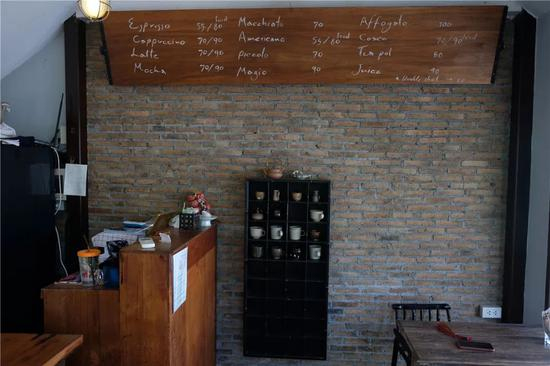 Espresso 55/80 iced Macchiato 70 Affogato 100
Cappuccino 70/90 Americano 55/80 iced Cocoa 70/90 iced
Latte 70/90 piccolo 70 Tea pot 80
Mocha 70/90 Magic 90 Juice 90
Double shot